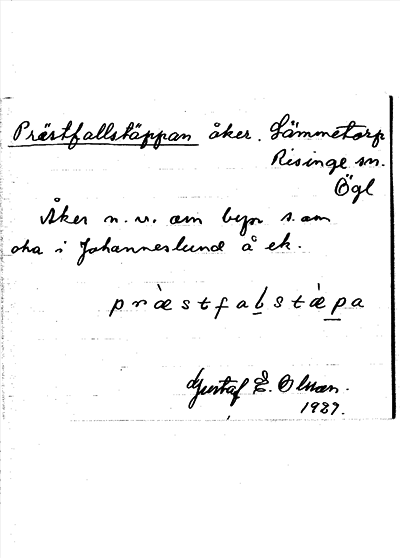 Prästfallstäppan åker. Lämmetorp
Risinge sn.
Ögl
Åker n. v. om byn s. om
cha i Johanneslund å ek.
præ̀stfabstæ̀pa
Gustaf E. Olsson.
1937.